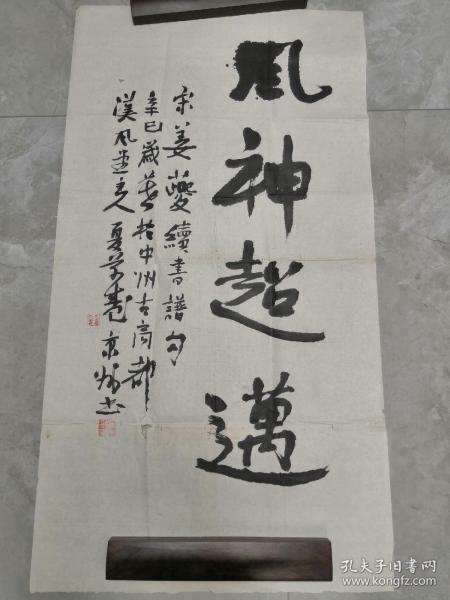 風神超邁
宋姜夔續書譜句
辛巳歲暮於中州古商都
漢風堂主夏京州書
孔夫子旧书网
www.kongfz.com